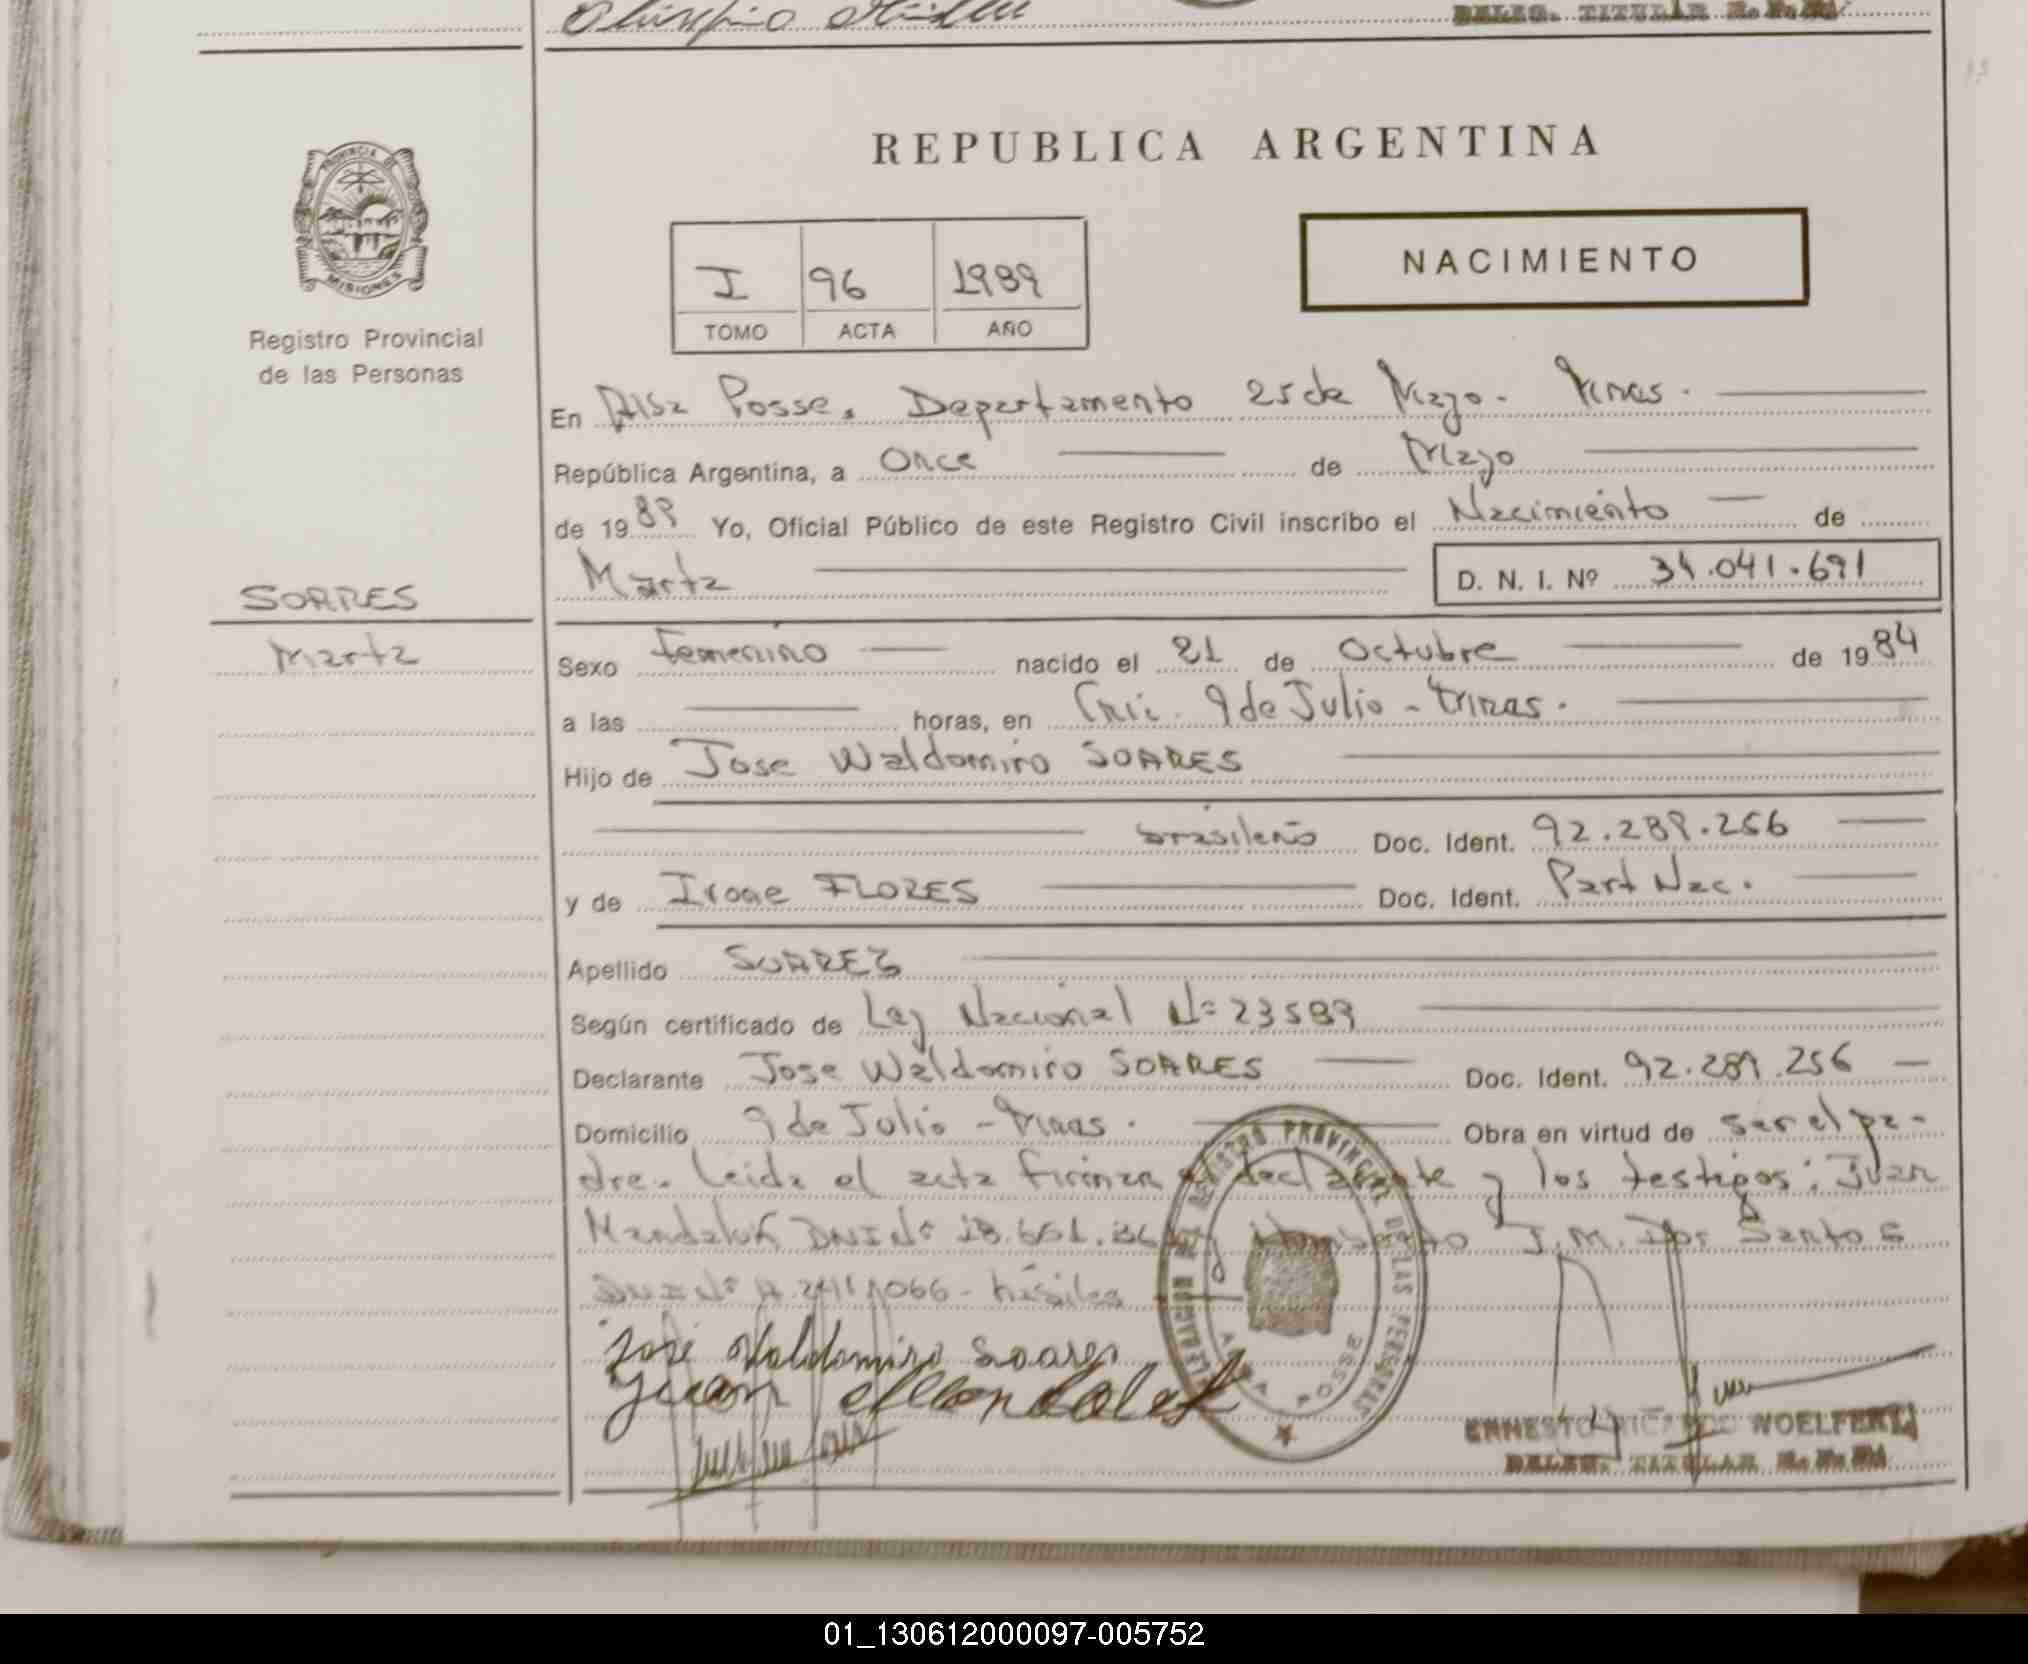 DELEG. TITULAR
REPUBLICA ARGENTINA
PROVINCIA DE
MISIONES
Registro Provincial
de las Personas
I 96 1989
TOMO ACTA AÑO
NACIMIENTO
En Alba Posse, Departamento 25 de Mayo - Mnes.
República Argentina, a Once de Mayo
de 1989 Yo, Oficial Público de este Registro Civil inscribo el Nacimiento de
Marta D. N. I. Nº 34.041.691
SOARES
Marta
Sexo femenino nacido el 21 de Octubre de 1984
a las horas, en 9 de Julio - Mnes.
Hijo de Jose Waldomiro SOARES
brasileño Doc. Ident. 92.289.256
y de Irone FLORES Doc. Ident. Part Nac.
Apellido SOARES
Según certificado de Ley Nacional Nº 23589
Declarante Jose Waldomiro SOARES Doc. Ident. 92.289.256
Domicilio 9 de Julio - Mnes. Obra en virtud de ser el pa-
dre. Leida el acta firman el declarante y los testigos: Juan
DNI Nº y Humberto J.M. Dos Santos
DNI Nº
José Valdomiro Soares
Juan
REGISTRO PROVINCIAL DE LAS PERSONAS
ALBA POSSE
ERNESTO RICARDO WOELFERT
DELEG. TITULAR
01_130612000097-005752